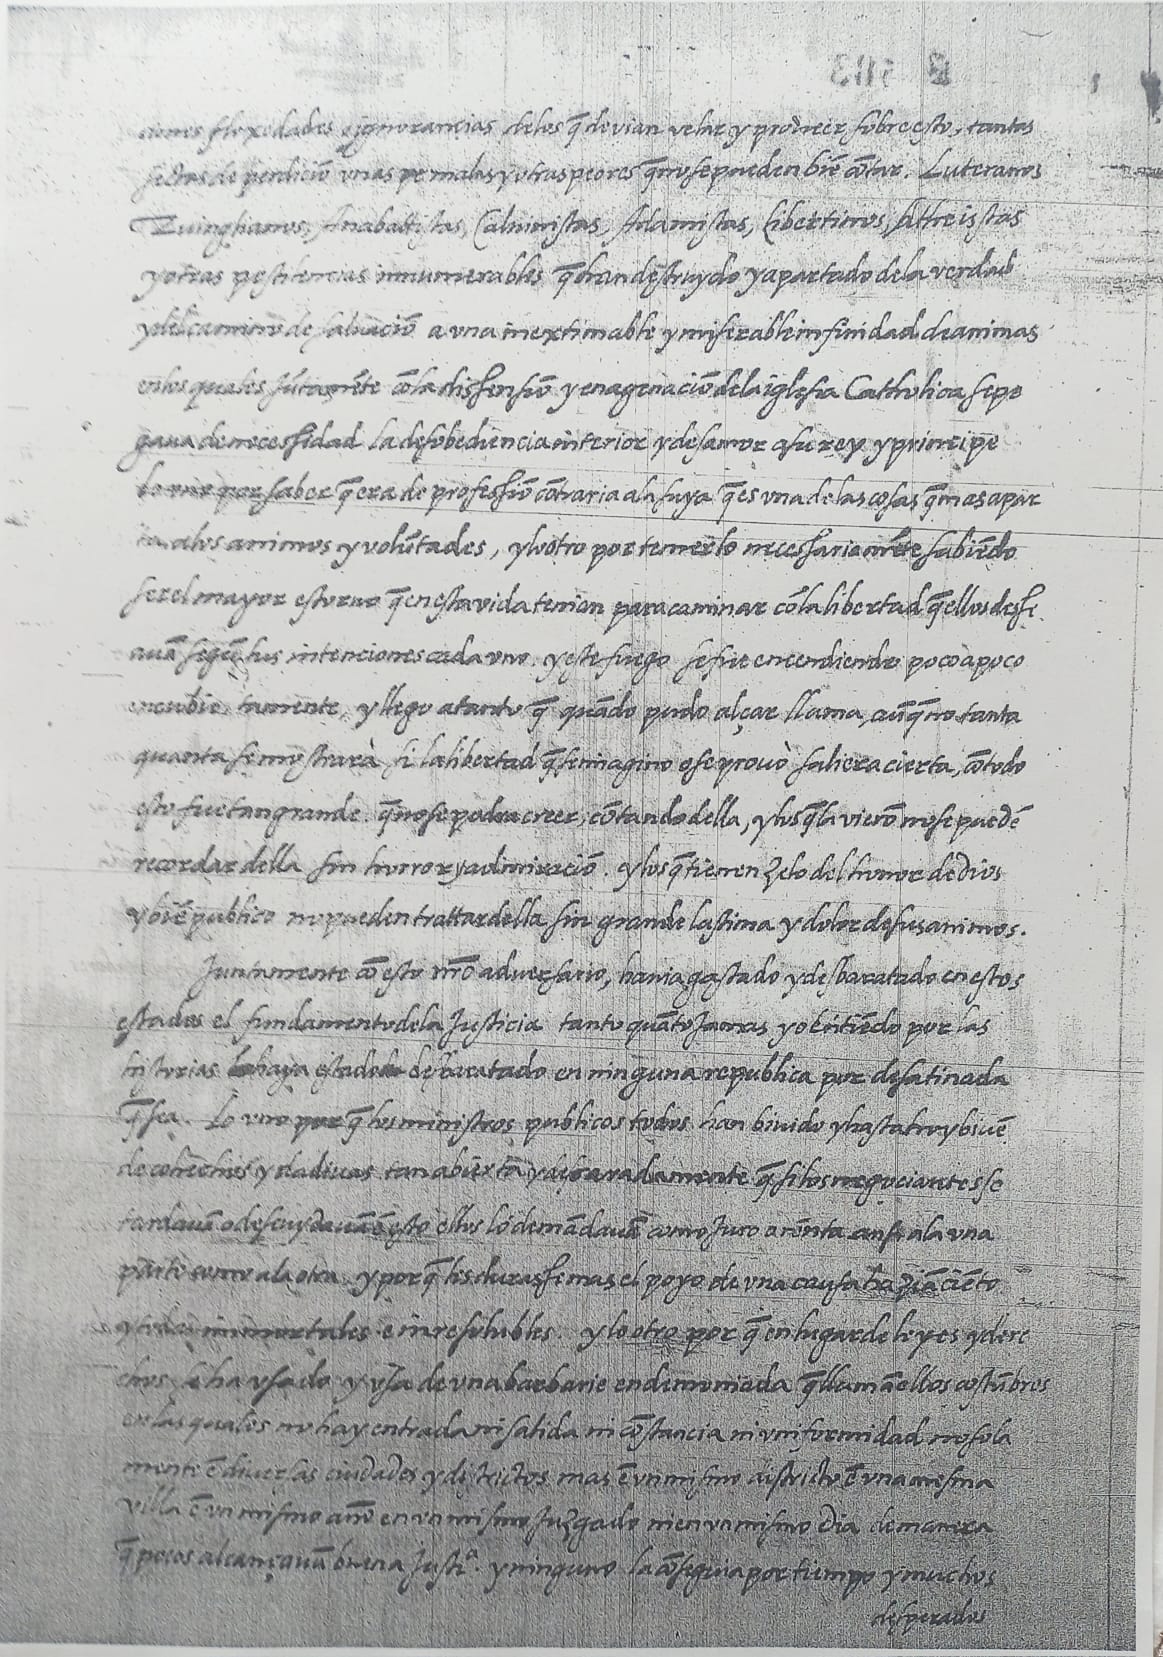 ciones floxedades e ygnorancias delos q̃ devian velar y proveer sobre esto, tantas
sectas de perdiciõ unas malas y otras peores q̃ no se pueden biẽ cõtar. Luteranos
Zuinglianos, Anabaptistas, Calvinistas, Adamistas, Libertinos, Atheistas
y otras pestilencias innumerables q̃ han destruydo y apartado dela verdad
y del camino de salvaciõ a una inextimable y miserable infinidad de animas
en los quales jũtamẽte cõ la dissensiõ y enagenaciõ dela iglesia Catholica se pe
gava de necessidad la desobediencia interior y desamor a su rey y principe
lo uno por saber q̃ era de professiõ cõtraria ala suya q̃ es una de las cosas q̃ mas apar
ta a los animos y volũtades, y lo otro por temerlo necessariamẽte sabiẽdo
ser el mayor estorvo q̃ en esta vida tenian para caminar cõ la libertad q̃ ellos desse
avã segũ sus intenciones cada uno. y este fuego se fue encendiendo poco a poco
encubiertamente, y llego a tanto q̃ quãdo pudo alçar llama, aũq̃ no tanta
quanta se mostrarà si la libertad q̃ se imagino o se provò saliera cierta, cõ todo
esto fue tan grande q̃ no se podra creer, cõtando della, y los q̃ la vierõ no se puedẽ
recordar della sin horror y admiraciõ. y los q̃ tienen zelo del honor de Dios
y biẽ publico no pueden trattar della sin grande lastima y dolor de sus animos.
Juntamente cõ esto nr̃o adversario, havia gastado y desbaratado en estos
estados el fundamento dela Justicia tanto quãto Jamas yo ẽtiẽdo por las
historias haya estado desbaratado en ninguna republica por desatinada
q̃ sea. Lo uno por q̃ los ministros publicos todos han bivido y hasta hoy bivẽ
de cohechos y dadivas tan abierta y descaradamente q̃ si los negociantes se
tardavã o descuydavã ẽ esto ellos lo demãdavã como Juro o rẽnta ansi ala una
parte como ala otra, y por q̃ les durasse mas el poyo de una causa haziã ciẽto
y todas immortales e inresolubles. y lo otro por q̃ en lugar de leyes y dere
chos se ha usado y usa de una barbarie endemoniada q̃ llamã ellos costũbres
en las quales no hay entrada ni salida ni cõstancia ni uniformidad no sola
mente ẽ diversas ciudades y districtos mas ẽ un mismo districto ẽ una misma
villa ẽ un mismo año en un mismo Juzgado ni en un mismo dia de manera
q̃ pocos alcançavã buena Justiª. y ninguno la cõseguia por tiempo y muchos
desperados